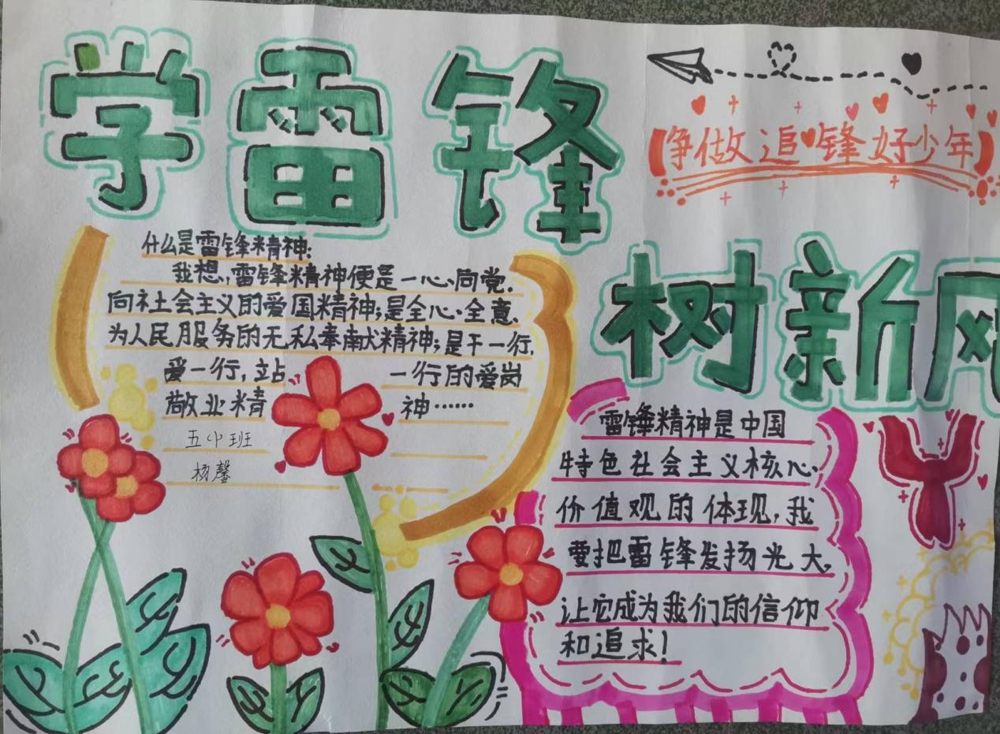 学雷锋
争做追锋好少年
树新风
什么是雷锋精神:
我想,雷锋精神便是一心向党.
向社会主义的爱国精神;是全心全意.
为人民服务的无私奉献精神;是干一行.
爱一行,站一行的爱岗
敬业精神······
五中班
杨馨
雷锋精神是中国
特色社会主义核心.
价值观的体现,我
要把雷锋发扬光大,
让它成为我们的信仰
和追求!